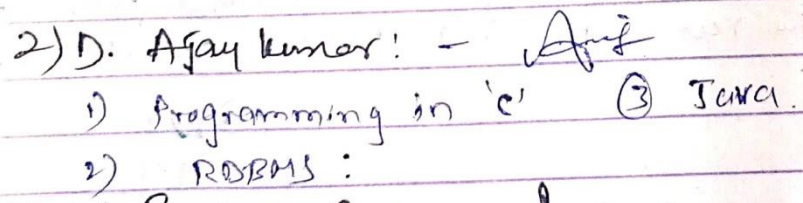 2) D. Ajay kumar : -
1) Programming in 'c' ③ Java.
2) RDBMS :